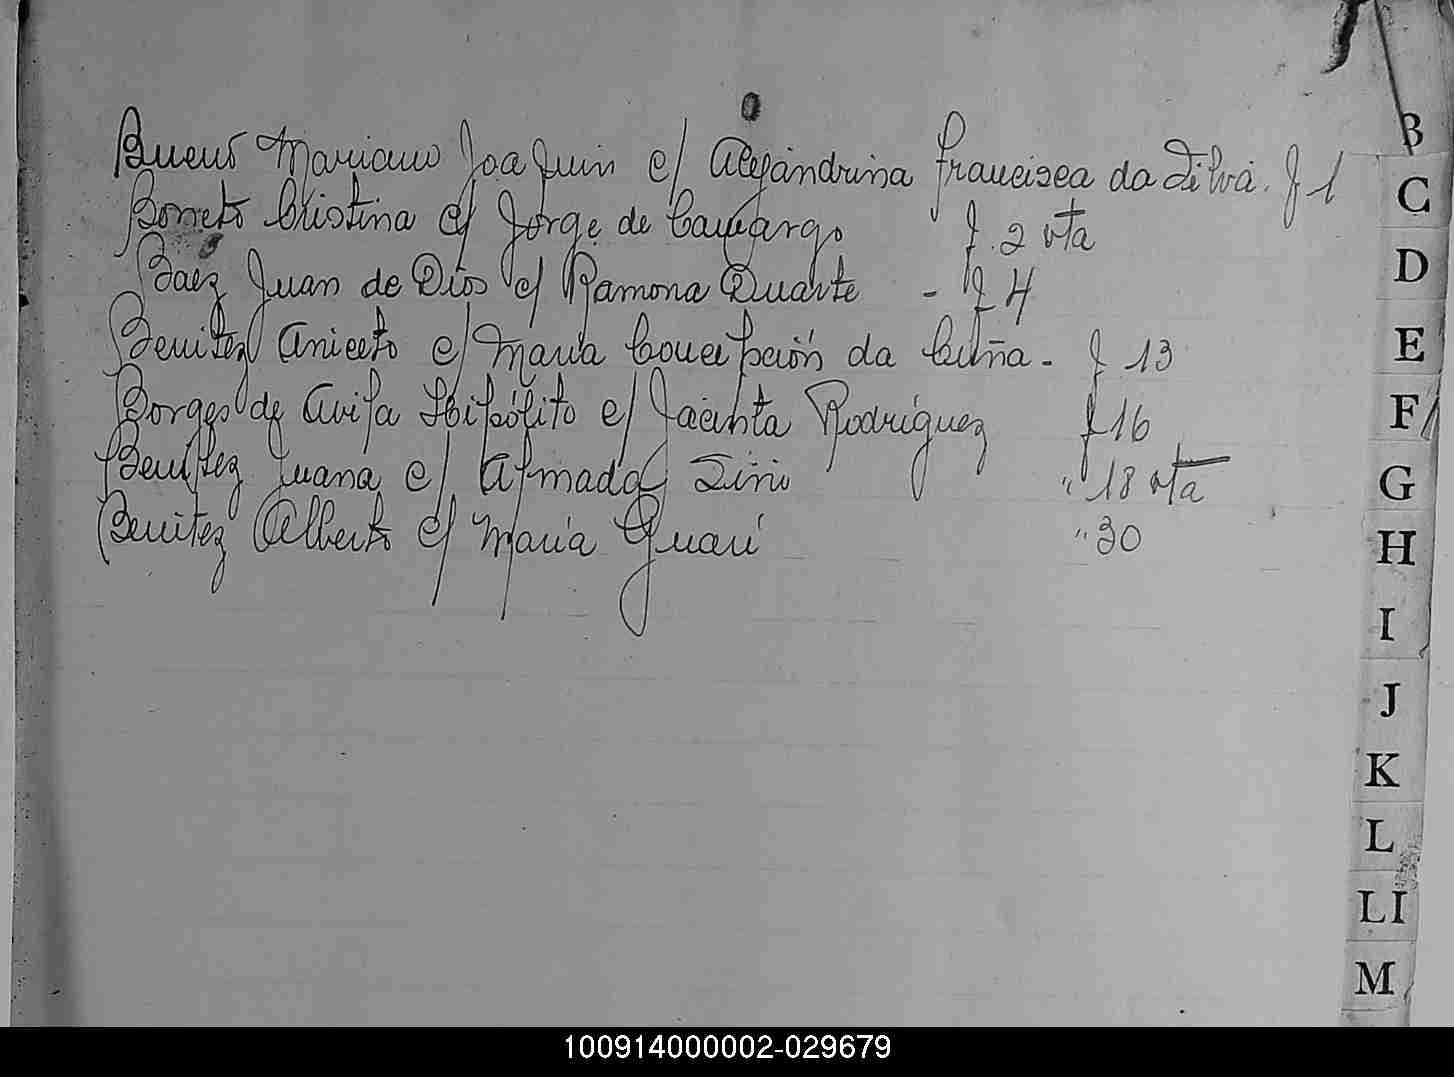 Bueno Mariano Joaquin c/ Alejandrina Francisca da Silva. F 1
Boneto Cristina c/ Jorge de Camargo F. 2 vta
Baez Juan de Dios c/ Ramona Duarte - F 4
Benitez Aniceto c/ Maria Concepción da Cuña - F 13
Borges de Avila Hipólito c/ Jacinta Rodríguez F 16
Benitez Juana c/ Almada " 18 vta
Benitez Alberto c/ Maria " 30
B
C
D
E
F
G
H
I
J
K
L
LI
M
100914000002-029679